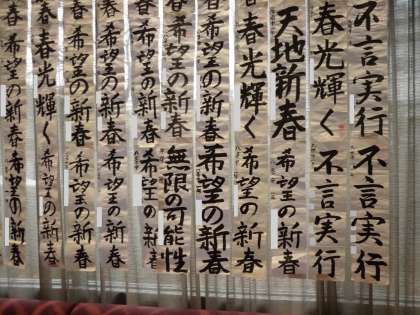 不言実行
不言実行
春光輝く
不言実行
天地新春
希望の新春
春光輝く
希望の新春
希望の新春
希望の新春
希望の新春
無限の可能性
希望の新春
希望の新春
希望の新春
希望の新春
希望の新春
希望の新春
春光輝く
希望の新春
希望の新春
希望の新春